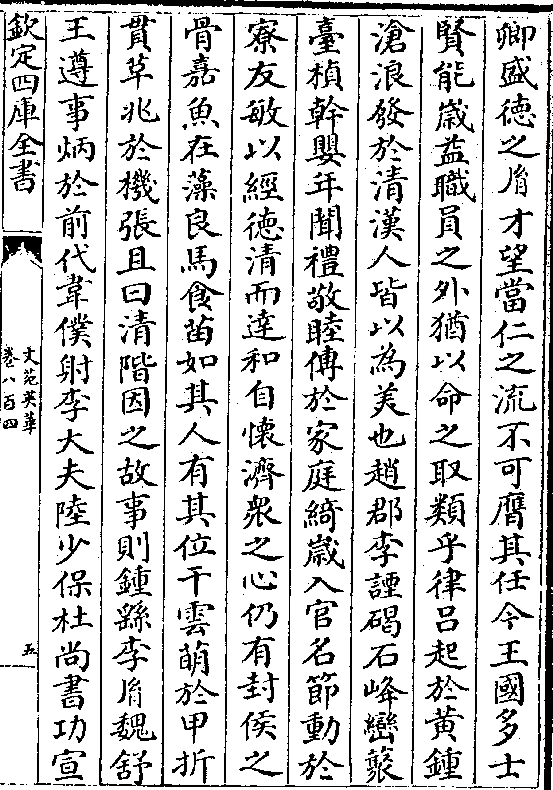 卿盛德之胤才望當仁之流不可膺其任今王國多士
賢能嵗益職員之外猶以命之取類乎律吕起於黄鍾
滄浪發於清漢人皆以為美也趙郡李諲碣石峰巒藂
臺楨幹嬰年聞禮敬睦傳於家庭綺嵗入官名節動於
寮友敏以經徳清而逹和自懷濟衆之心仍有封侯之
骨嘉魚在藻良馬食苗如其人有其位干雲萌於甲折
貫革兆於機張且曰清階因之故事則鍾繇李胤魏舒
王遵事炳於前代韋僕射李大夫陸少保杜尚書功宣
欽定四庫全書
文苑英華
卷八百四
五